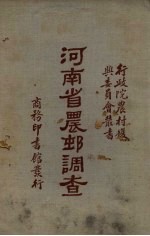 行政院農村復
興委員會叢書
河南省農邨調查
商務印書館發行